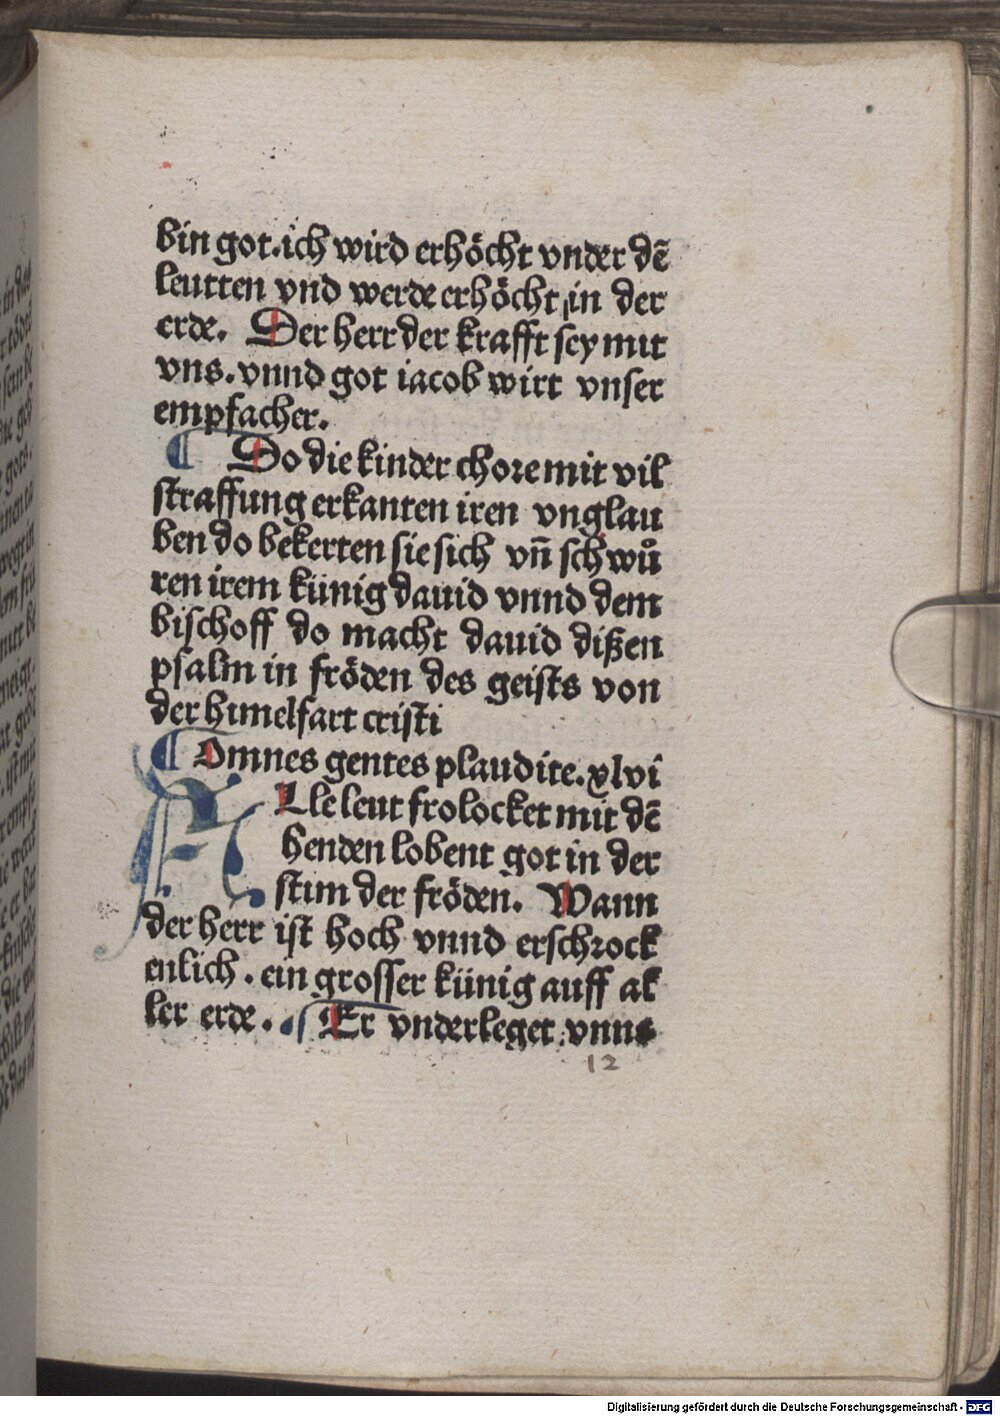 bin got. ich wird erhöcht vnder dē
leutten vnd werde erhöcht in der
erde. Der herr der krafft sey mit
vns. vnnd got iacob wirt vnser
empfacher.
¶ Do die kinder chore mit vil
straffung erkanten iren vnglau
ben do bekerten sie sich vn̄ schwů
ren irem künig dauid vnnd dem
bischoff do macht dauid dißen
psalm in fröden des geists von
der himelfart cristi
¶ Omnes gentes plaudite. xlvi
ALle leut frolocket mit dē
henden lobent got in der
stim der fröden. Wann
der herr ist hoch vnnd erschrock
enlich. ein grosser künig auff al
ler erde. ¶ Er vnderleget vnns
12
Digitalisierung gefördert durch die Deutsche Forschungsgemeinschaft - DFG